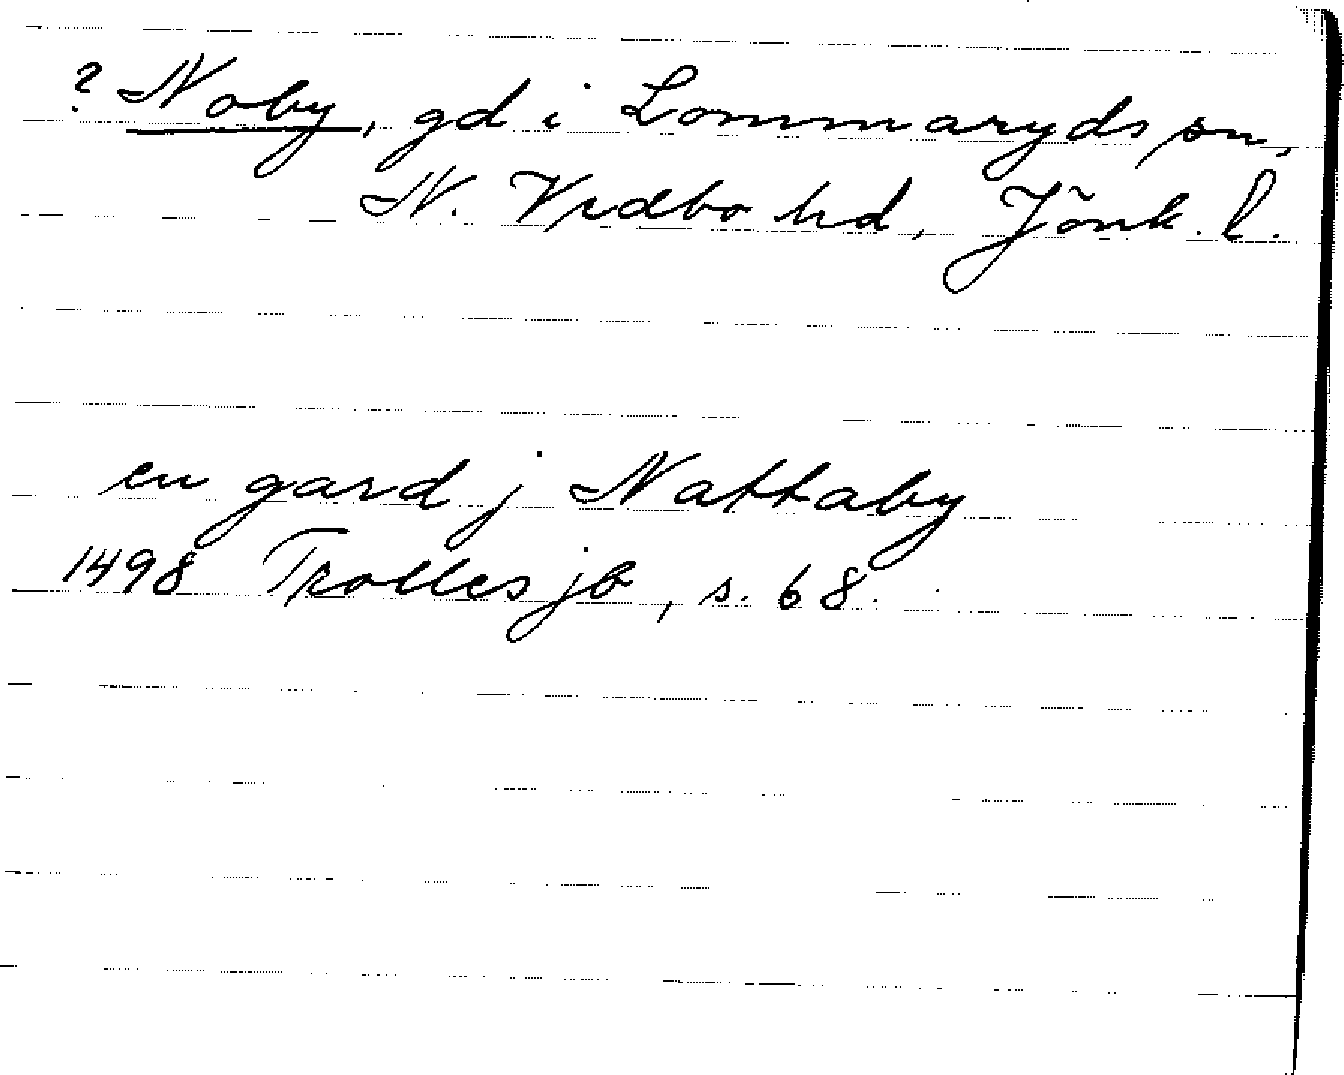 ? Noby, gd i Lommaryds sn,
N. Vedbo hd, Jönk. l.
en gard j Nattaby
1498 Trolles jb, s. 68.